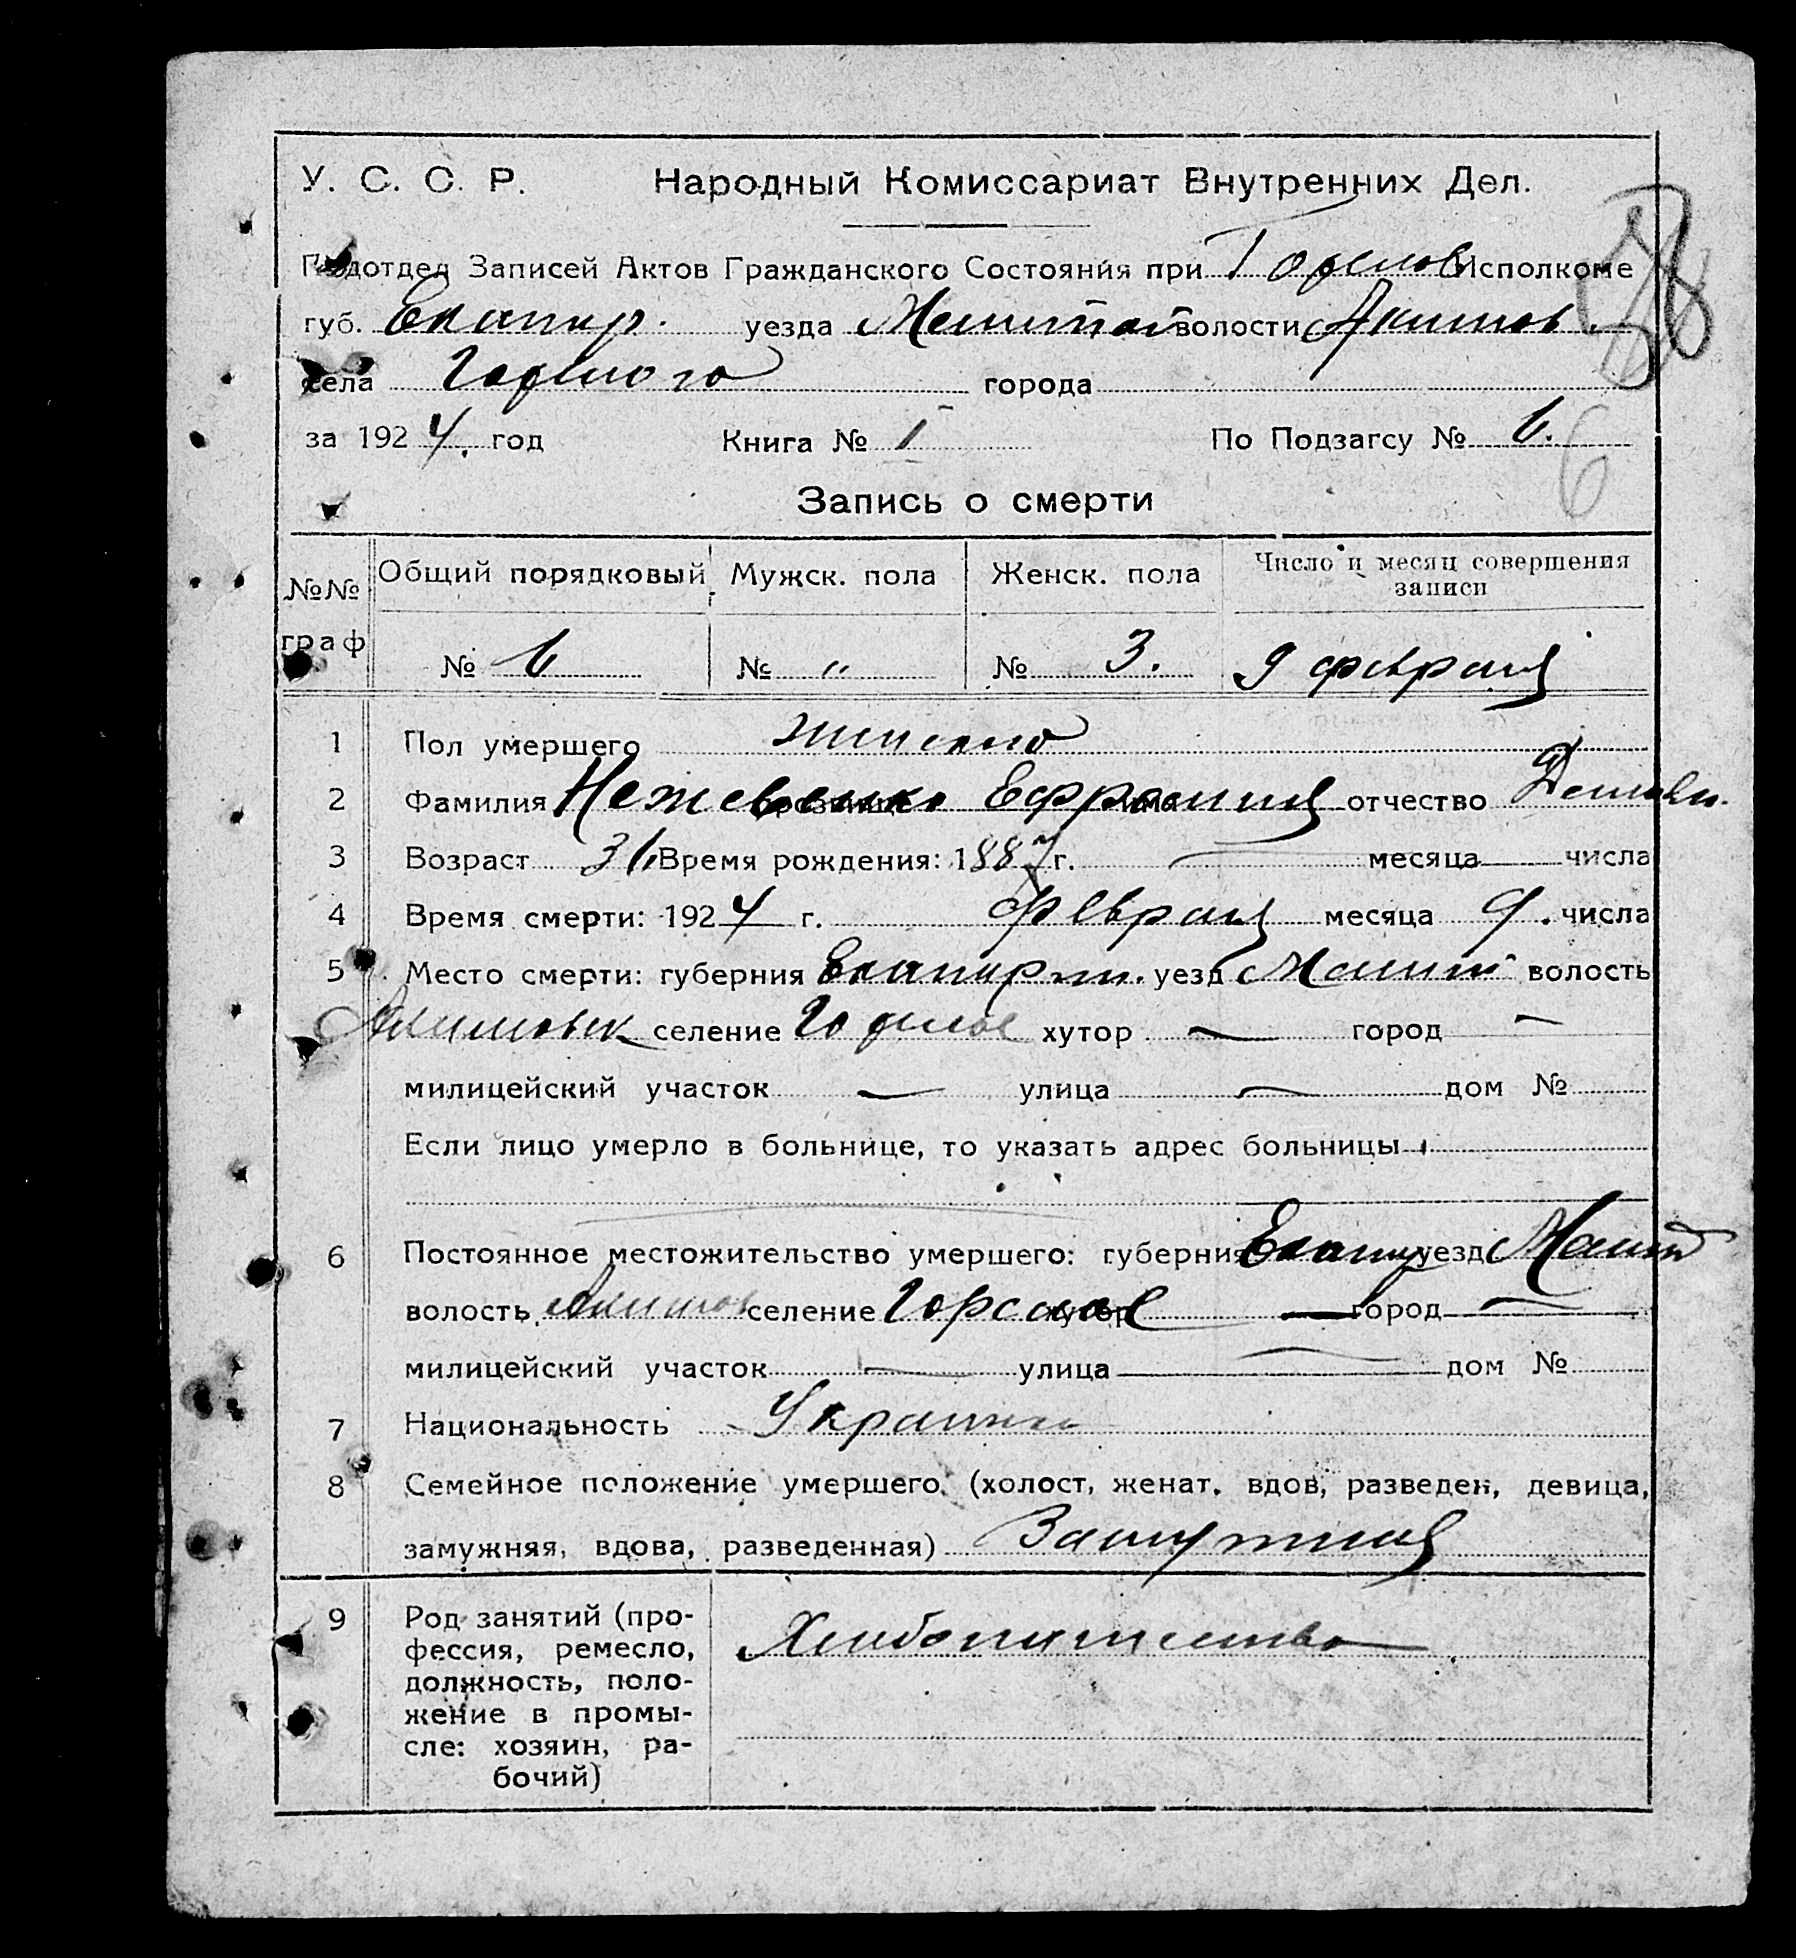 У. С. С. Р. Народный Комиссариат Внутренних Дел.
Подотдел Записей Актов Гражданского Состояния при Исполкоме
губ. Екатер. уезда волости Акимов
села города
за 1924 год Книга № I По Подзагсу № 6.
58
6
Запись о смерти
№№ граф Общий порядковый Мужск. пола Женск. пола Число и месяц совершения записи
№ 6 № „ № 3. 9 февраля
1 Пол умершего женского
2 Фамилия прозвище имя отчество
3 Возраст 36 Время рождения: 1887 г. — месяца числа
4 Время смерти: 1924 г. Февраля месяца 9. числа
5 Место смерти: губерния уезд Мелит волость
Акимовск селение хутор — город —
милицейский участок — улица — дом №
Если лицо умерло в больнице, то указать адрес больницы
6 Постоянное местожительство умершего: губерния Екатер уезд Мелит
волость Акимов селение хутор — город —
милицейский участок — улица — дом №
7 Национальность
8 Семейное положение умершего (холост, женат, вдов, разведен, девица,
замужняя, вдова, разведенная) Замужняя
9 Род занятий (про-
фессия, ремесло,
должность, поло-
жение в промы-
сле: хозяин, ра-
бочий)
Хлебопашество